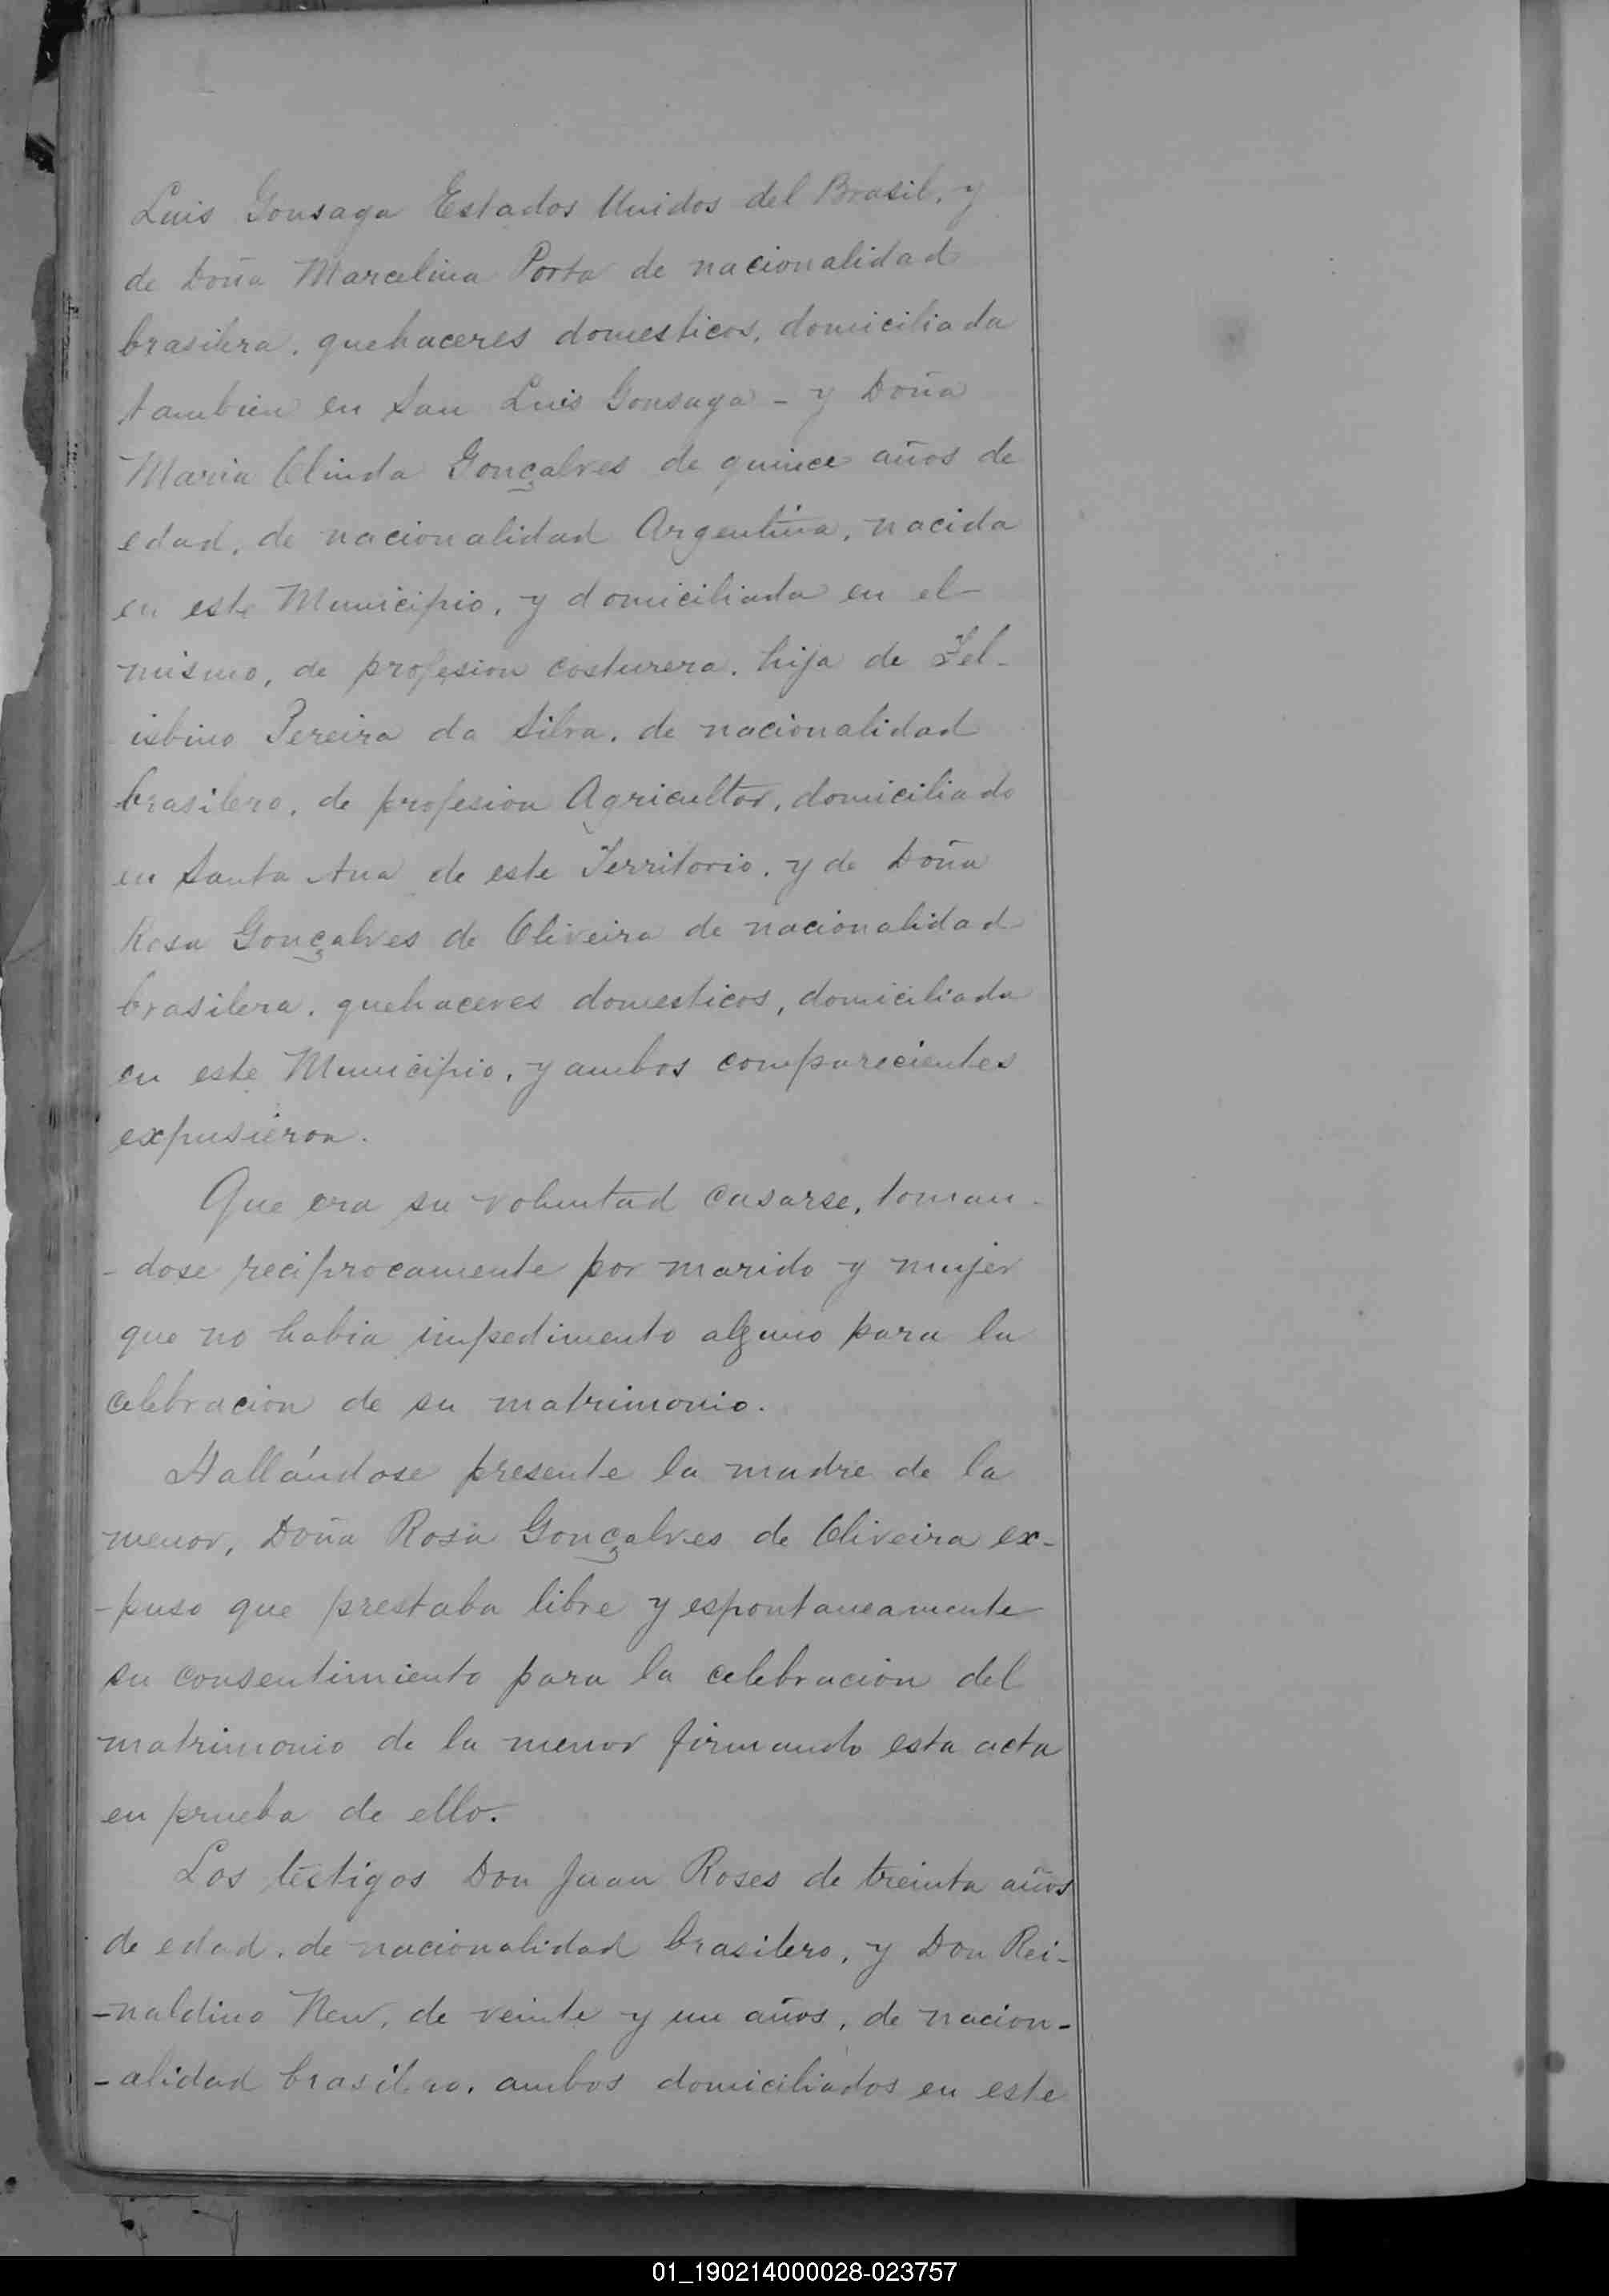 Luis Gonsaga Estados Unidos del Brasil, y
de Doña Marcelina Porta de nacionalidad
brasilera, quehaceres domesticos, domiciliada
tambien en San Luis Gonsaga - y Doña
Maria Olinda Gonçalves de quince años de
edad, de nacionalidad Argentina, nacida
en este Municipio, y domiciliada en el
mismo, de profesion costurera, hija de Fel-
isbino Pereira da Silva, de nacionalidad
brasilero, de profesion Agricultor, domiciliado
en Santa Ana de este Territorio, y de Doña
Rosa Gonçalves de Oliveira de nacionalidad
brasilera, quehaceres domesticos, domiciliada
en este Municipio, y ambos comparecientes
expusieron.
Que era su voluntad casarse, toman-
-dose reciprocamente por marido y mujer
que no habia impedimento alguno para la
celebracion de su matrimonio.
Hallándose presente la madre de la
menor, Doña Rosa Gonçalves de Oliveira ex-
-puso que prestaba libre y espontaneamente
su consentimiento para la celebracion del
matrimonio de la menor firmando esta acta
en prueba de ello.
Los testigos Don Juan Roses de treinta años
de edad, de nacionalidad brasilero, y Don Rei-
-naldino New, de veinte y un años, de nacion-
-alidad brasilero, ambos domiciliados en este
01_190214000028-023757